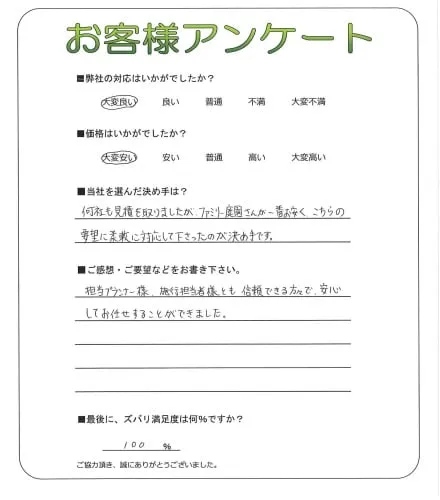 お客様アンケート
■弊社の対応はいかがでしたか?
大変良い 良い 普通 不満 大変不満
■価格はいかがでしたか?
大変安い 安い 普通 高い 大変高い
■当社を選んだ決め手は?
何社も見積を取りましたが、ファミリー庭園さんが一番お安く、こちらの
要望に柔軟に対応して下さったのが決め手です。
■ご感想・ご要望などをお書き下さい。
担当プランナー様、施行担当者様とも信頼できる方々で、安心
してお任せすることができました。
■最後に、ズバリ満足度は何%ですか?
100 %
ご協力頂き、誠にありがとうございました。